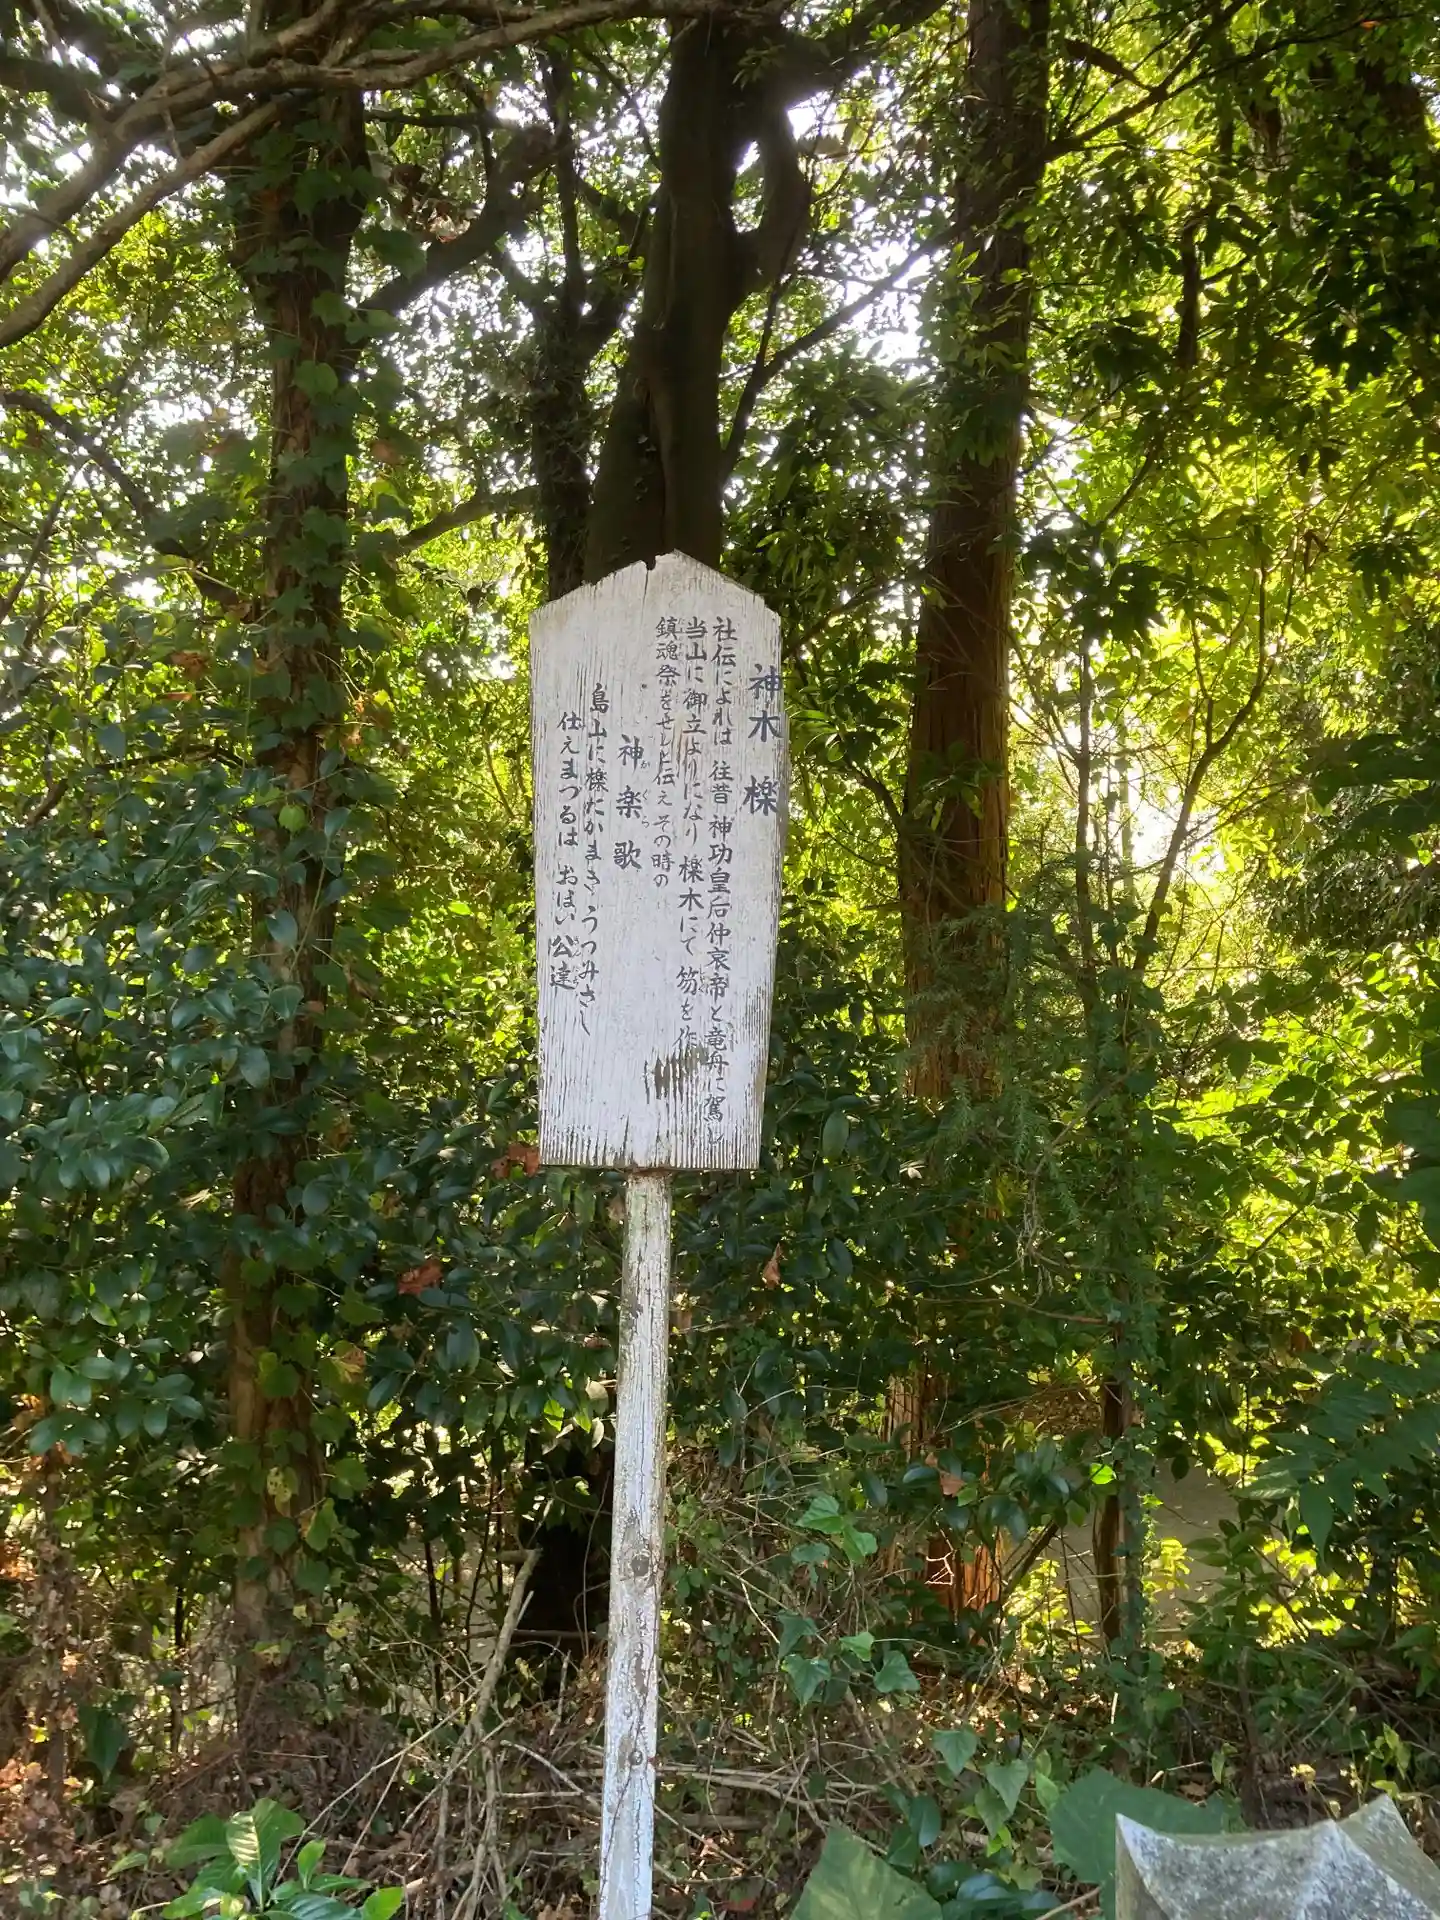 神木 櫟
社伝によれば 往昔 神功皇后仲哀帝と竜舟に駕し
当山に御立よりになり 櫟木にて 笏を作
鎮魂祭をせしと伝え その時の
神楽歌
かぐら
島山に櫟だかまきうつみさし
仕えまつるは おほい公達